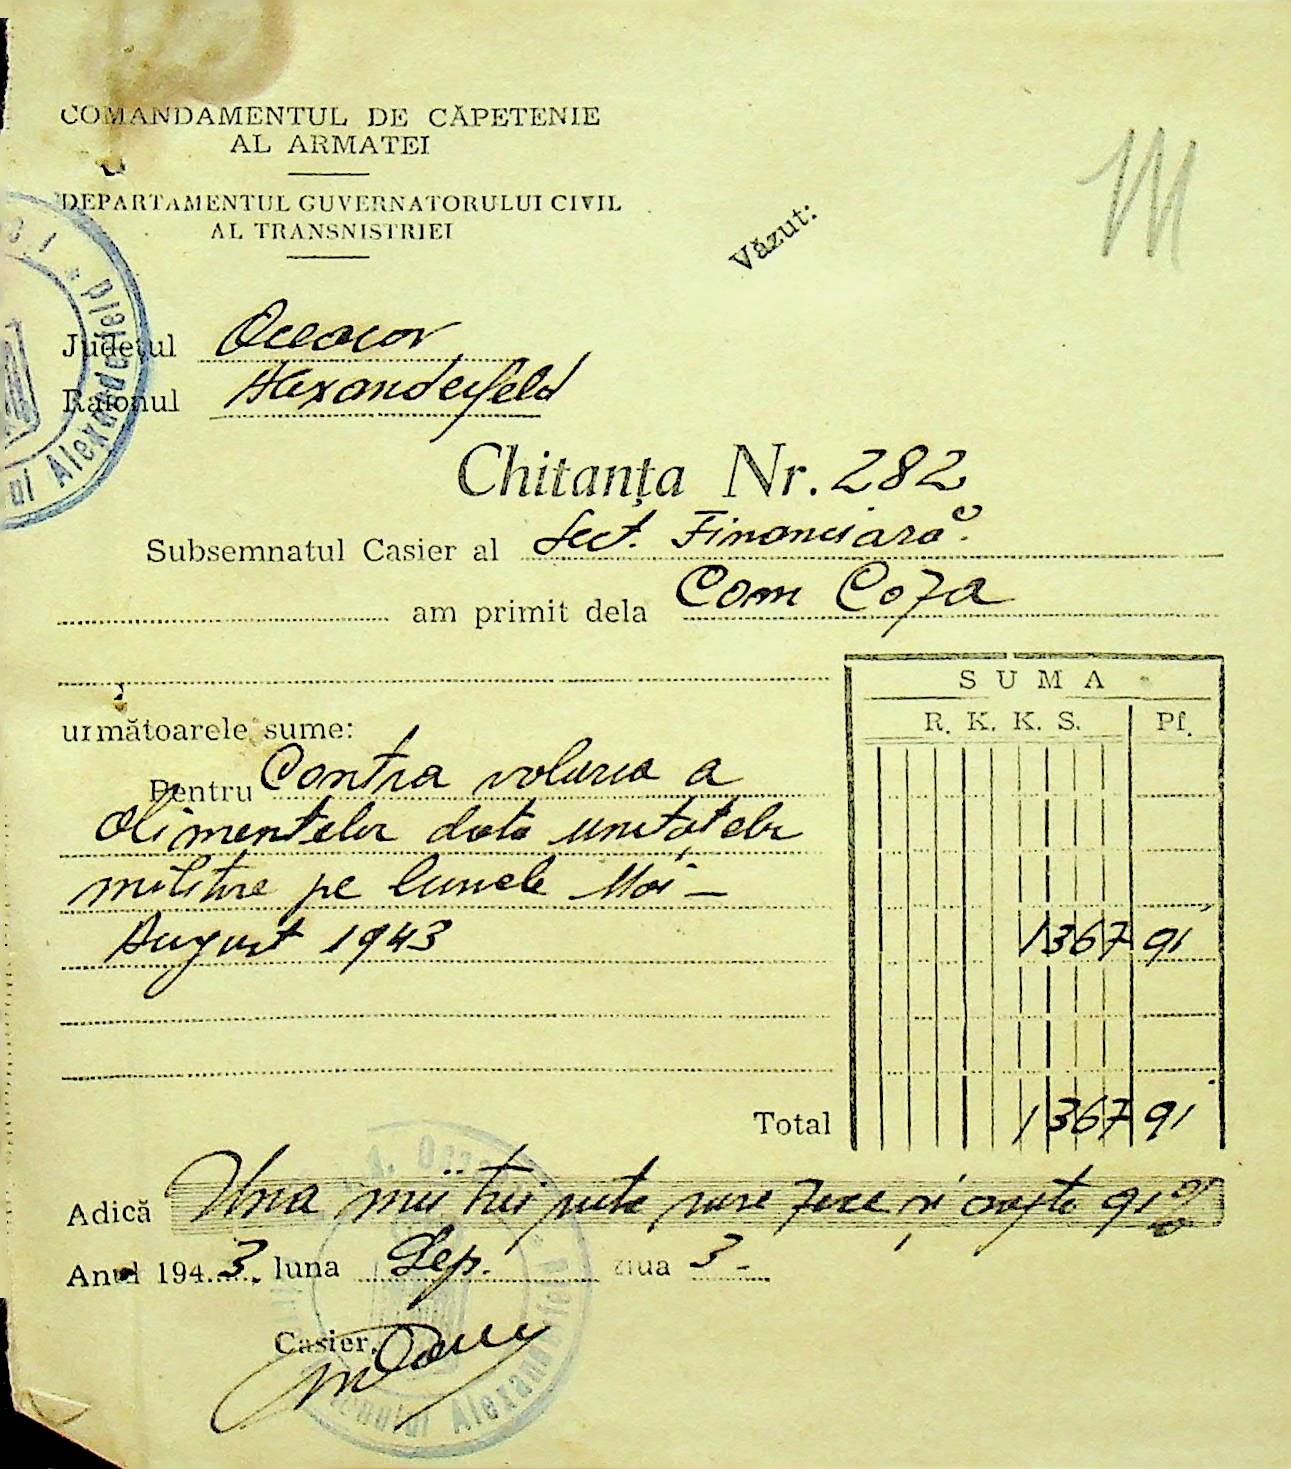 COMANDAMENTUL DE CĂPETENIE
AL ARMATEI
DEPARTAMENTUL GUVERNATORULUI CIVIL
AL TRANSNISTRIEI
Văzut:
Județul Oceacov
Raionul Alexanderfeld
ul Alexanderfeld
Chitanța Nr. 282
Subsemnatul Casier al Sect. Financiară
am primit dela Com Coja
SUMA
R. K. K. S. Pf.
următoarele sume:
Pentru Contra valuria a
alimentelor date unităților
militare pe lunele Mai –
August 1943 1367 91
Total 1367 91
Adică Una mii trei sute șase zece și șapte 91
Anul 1943. luna Sep. ziua 3 -
Casier,
Alexanderfeld